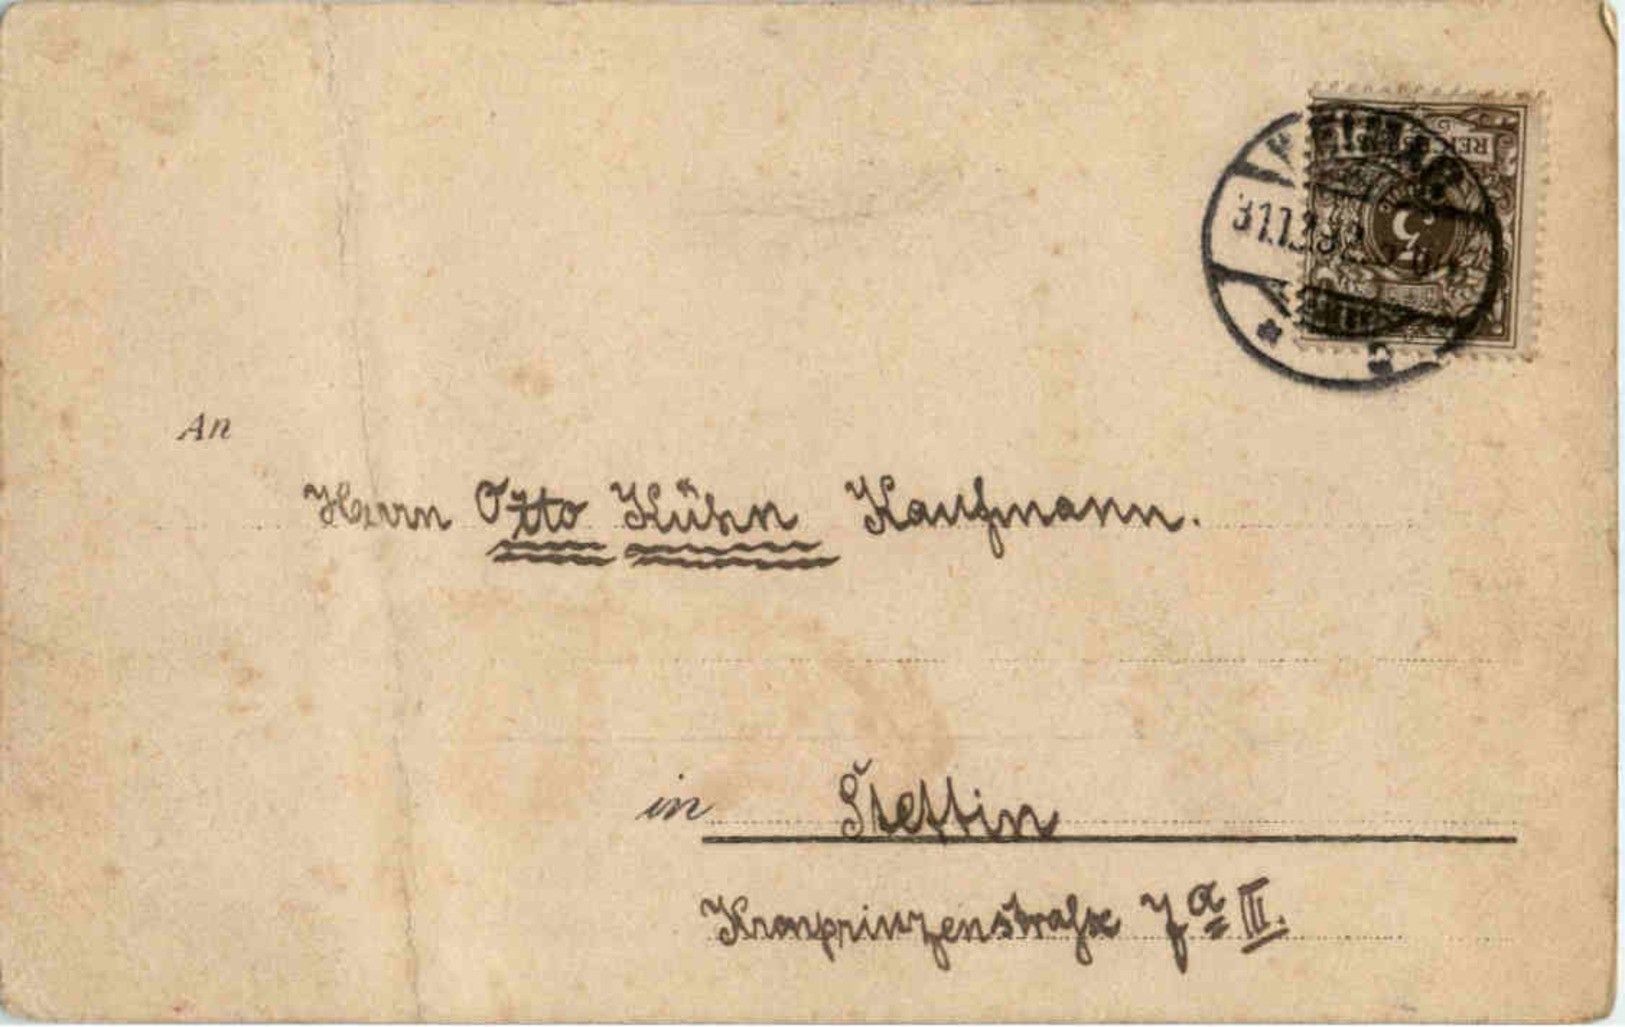 REICHSPOST
3
31.12.98
An
Herrn Otto Kühn Kaufmann.
in Stettin
Kronprinzenstraße 7a III.